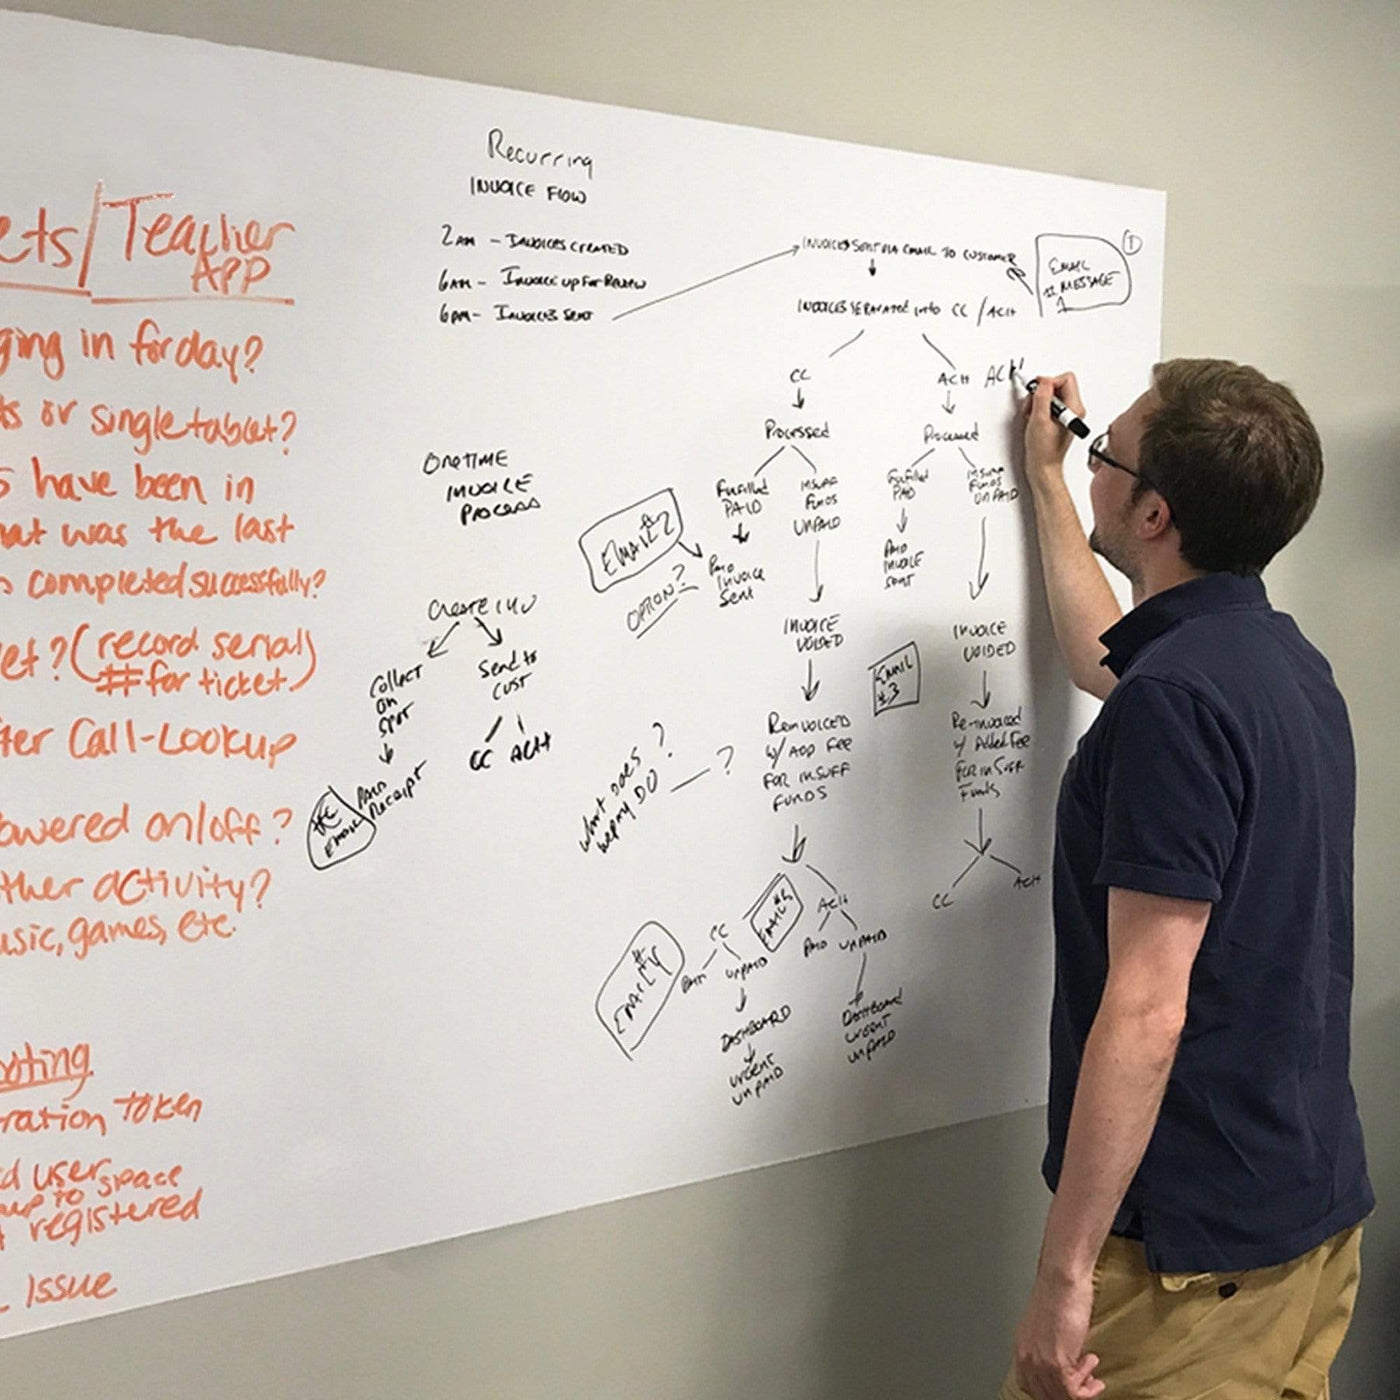 ets/Teacher
APP
ging in for day?
ts or single tablet?
s have been in
hat was the last
completed successfully?
et? (record serial
# for ticket)
fter Call-Lookup
owered on/off?
ther activity?
usic, games, etc.
oting
ration Token
d user space
up to
registered
ISSUE
Recurring
INVOICE FLOW
2AM - INVOICES CREATED
6AM - INVOICE UP FOR REVIEW
6PM - INVOICES SENT
INVOICES SENT VIA EMAIL TO CUSTOMER
1
EMAIL
MESSAGE
1
INVOICES SEPARATED INTO CC / ACH
CC
ACH ACH
Processed
Processed
Fulfilled
PAID
INSUFF
FUNDS
UNPAID
Fulfilled
PAID
INSUFF
FUNDS
UNPAID
EMAIL #2
OPTION?
PAID
INVOICE
Sent
PAID
INVOICE
SENT
INVOICE
VOIDED
INVOICE
VOIDED
EMAIL
#3
REINVOICED
W/ ADD FEE
FOR INSUFF
FUNDS
Re-invoiced
w/ Added Fee
FOR INSUFF
Funds
CC
ACH
CC
ACH
EMAIL #4
PAID
UNPAID
PAID
UNPAID
DASHBOARD
URGENT
UNPAID
DASHBOARD
URGENT
UNPAID
ONE TIME
INVOICE
PROCESS
CREATE INV
COLLECT
ON
SPOT
Send to
CUST
CC ACH
PAID
Receipt
EMAIL
What DOES
DO
?
?